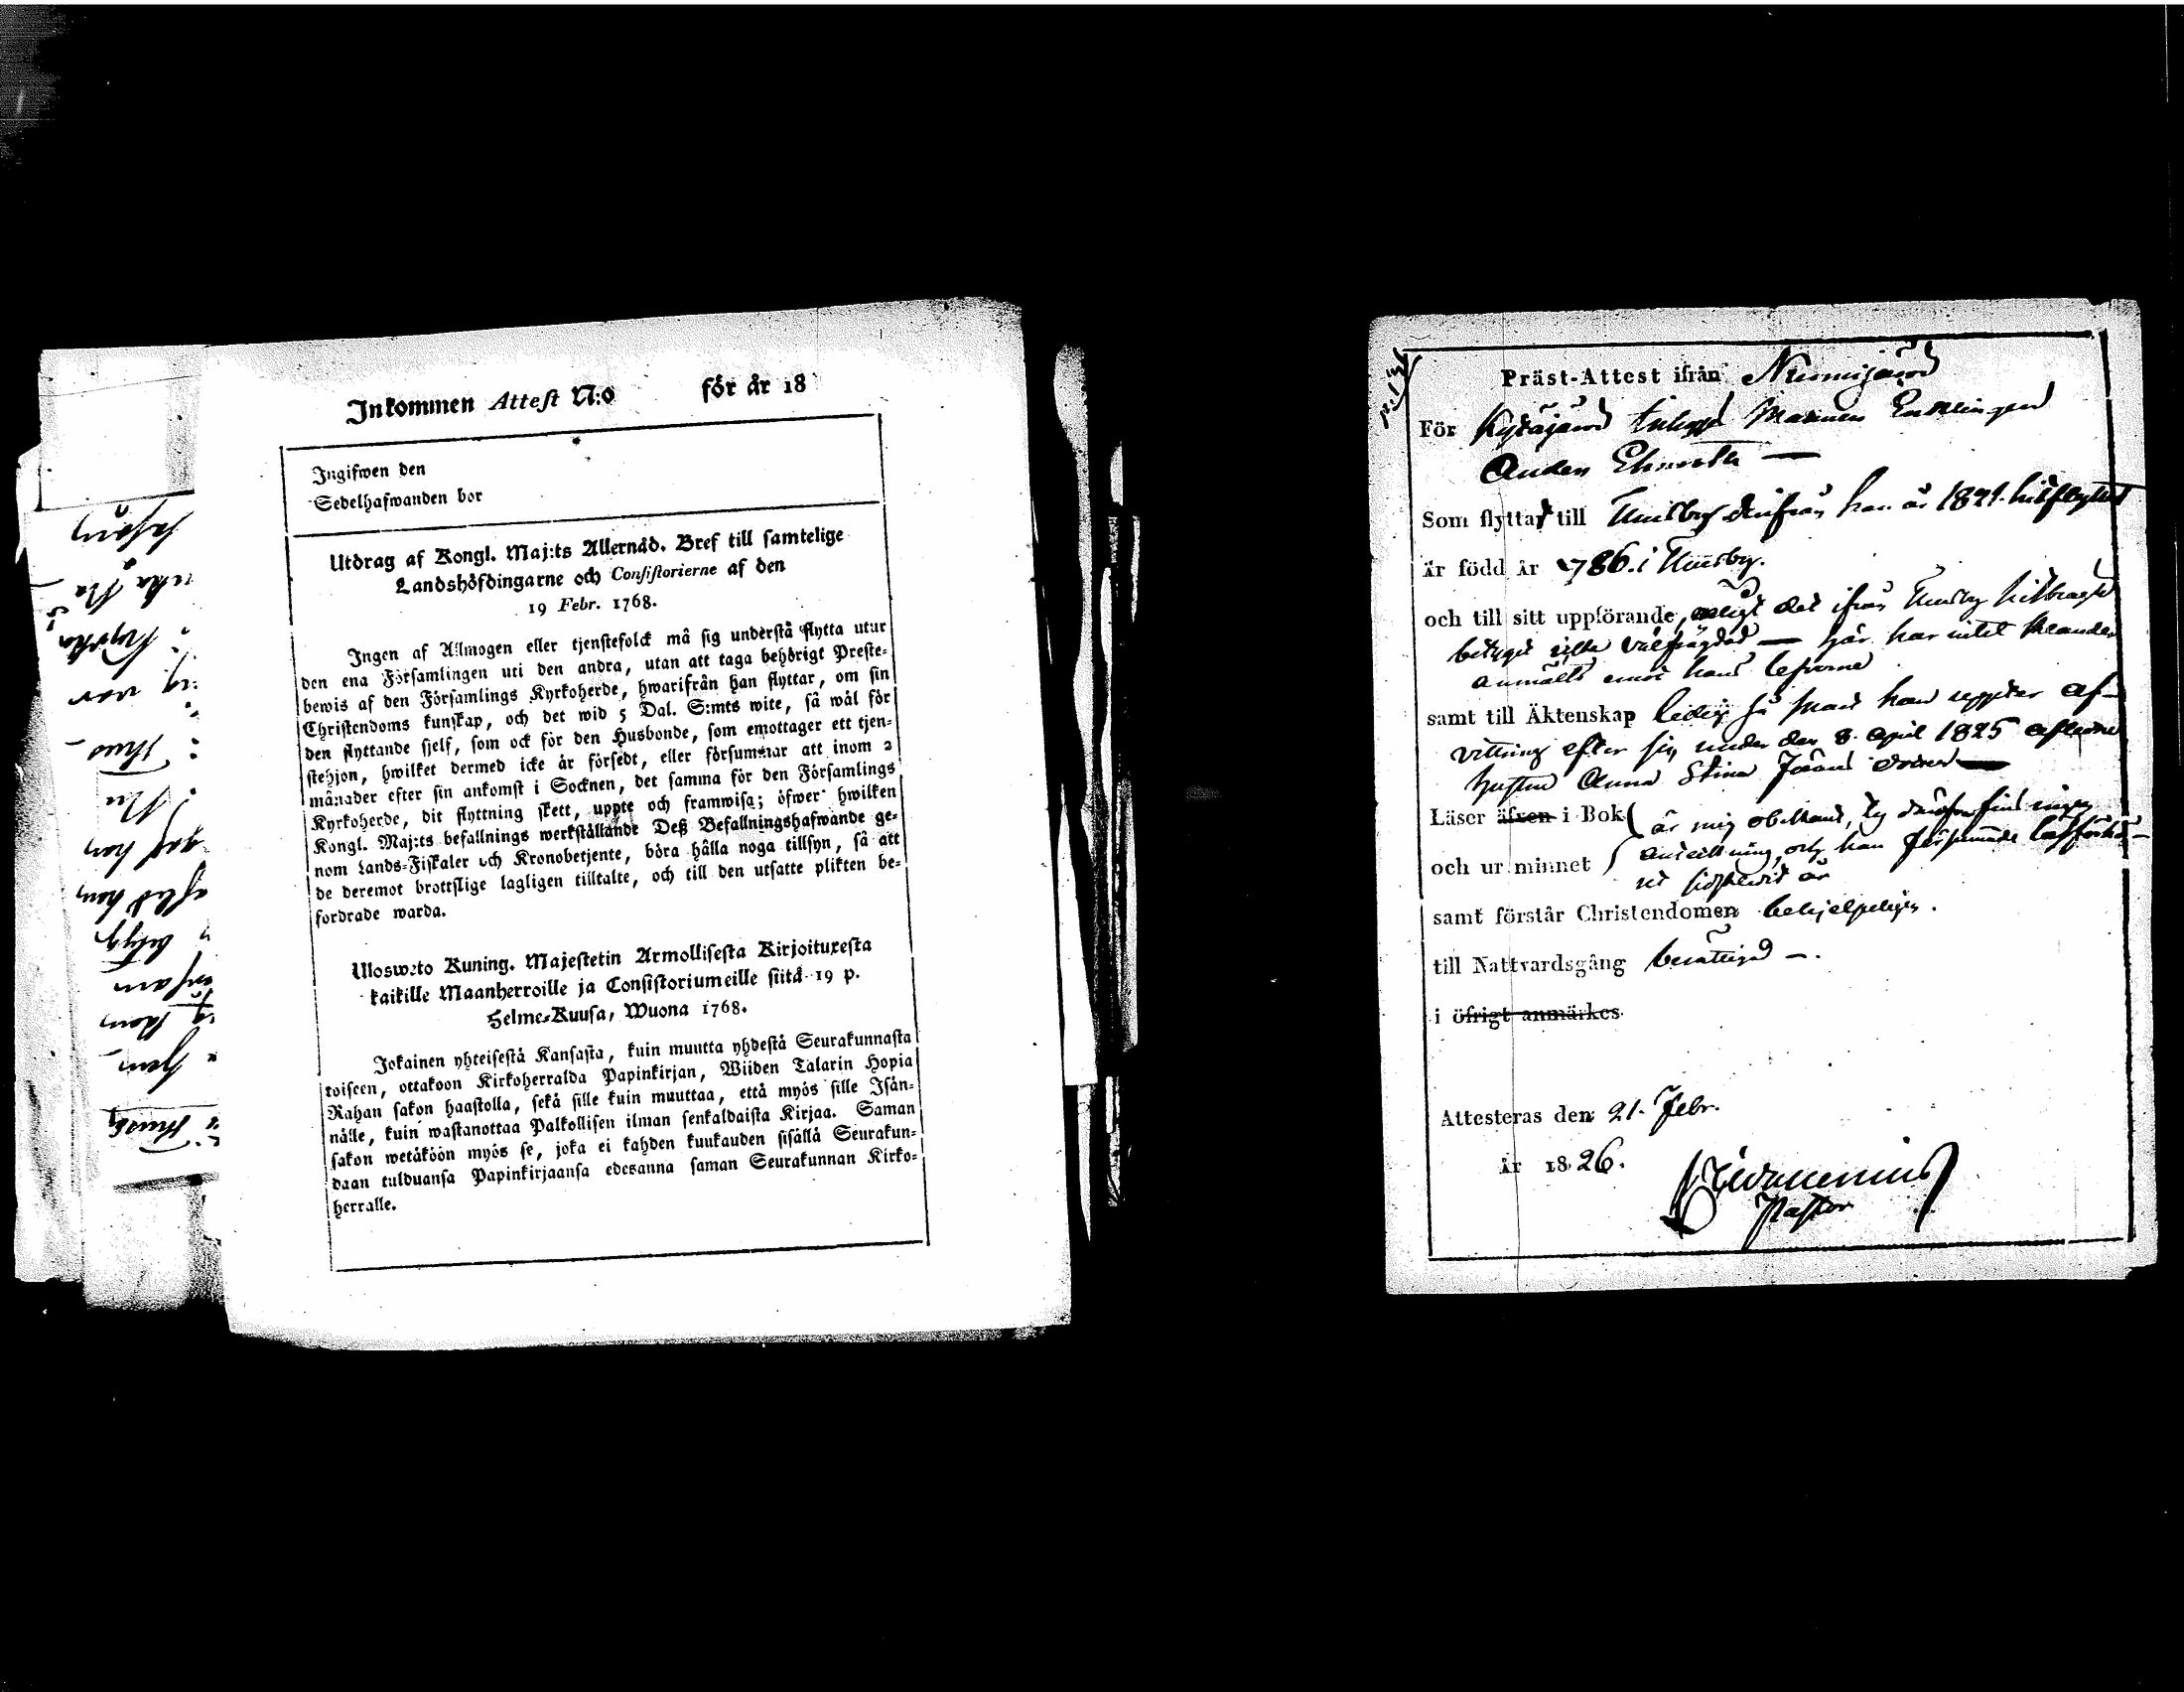 Inkommen Attest N:o för år 18
Ingifwen den
Sedelhafwanden bor
Utdrag af Kongl. Maj:ts Allernåd. Bref till samtelige
Landshöfdingarne och Consistorierne af den
19 Febr. 1768.
Ingen af Allmogen eller tjenstefolck må sig understå flytta utur
den ena Församlingen uti den andra, utan att taga behörigt Preste-
bewis af den Församlings Kyrkoherde, hwarifrån han flyttar, om sin
Christendoms kunskap, och det wid 5 Dal. S:mts wite, så wäl för
den flyttande sjelf, som ock för den Husbonde, som emottager ett tjen-
stehjon, hwilket dermed icke är försedt, eller försummar att inom 2
månader efter sin ankomst i Socknen, det samma för den Församlings
Kyrkoherde, dit flyttning skett, uppte och framwisa; öfwer hwilken
Kongl. Maj:ts befallnings werkställande Deß Befallningshafwande ge-
nom Lands-Fiskaler och Kronobetjente, böra hålla noga tillsyn, så att
de deremot brottslige lagligen tilltalte, och till den utsatte plikten be-
fordrade warda.
Ulosweto Kuning. Majestetin Armollisesta Kirjoituxesta
kaikille Maanherroille ja Consistoriumeille siitä 19 p.
Helme-Kuusa, Wuona 1768.
Jokainen yhteisestä Kansasta, kuin muutta yhdestä Seurakunnasta
toiseen, ottakoon Kirkoherralda Papinkirjan, Wiiden Talarin Hopia
Rahan sakon haastolla, sekä sille kuin muuttaa, että myös sille Isän-
nälle, kuin wastanottaa Palkollisen ilman senkaldaista Kirjaa. Saman
sakon wetäköön myös se, joka ei kahden kuukauden sisällä Seurakun-
daan tulduansa Papinkirjaansa edesanna saman Seurakunnan Kirko-
herralle.
Präst-Attest ifrån Nurmijärvi
För Kytäjärvi Enklingen
Anders
Som flyttar till Tunsby derifrån han år 1821 hitflyttat
är född år 1786 i Tunsby.
och till sitt uppförande, enligt det ifrån Tunsby hitbragte
betyget välfrägdad — här har intet klander
anmälts emot hans lefverne
samt till Äktenskap ledig så snart han uppter af-
vittring efter sin under den 8 April 1825 aflidne
hustru Anna Stina
Läser äfven i Bok är mig obekant, ty derom fins ingen
och ur minnet anteckning, och han försummade läsförhö-
ret sidstledit år
samt förstår Christendomen behjelpeligen.
till Nattvardsgång berättigad —.
i öfrigt anmärkes
Attesteras den 21. Febr.
år 1826.
Pastor